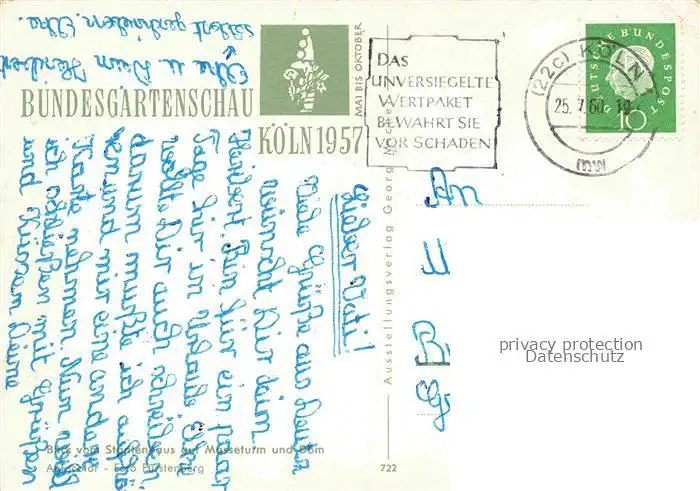 BUNDESGARTENSCHAU
KÖLN 1957
MAI BIS OKTOBER
DAS
UNVERSIEGELTE
WERTPAKET
BEWAHRT SIE
VOR SCHADEN
(22c) KÖLN
25.7.60
mw
DEUTSCHE BUNDESPOST
10
Lieber Vati!
Viele Grüße aus Deutz
wünscht Dir Dein
Heribert. Bin für ein paar
Tage hier in Urlaub. Elke
wollte Dir auch schreiben
darum mußte ich aufhö-
ren und mir eine andere
Karte nehmen. Nun will
ich schließen mit Grüßen
und Küssen Deine
Elke u. Dein Heribert
selbst geschrieben. Elke.
An
Ausstellungsverlag Georg
Blick vom Staatenhaus auf Messeturm und Dom
Foto Fürstenberg
722
privacy protection
Datenschutz